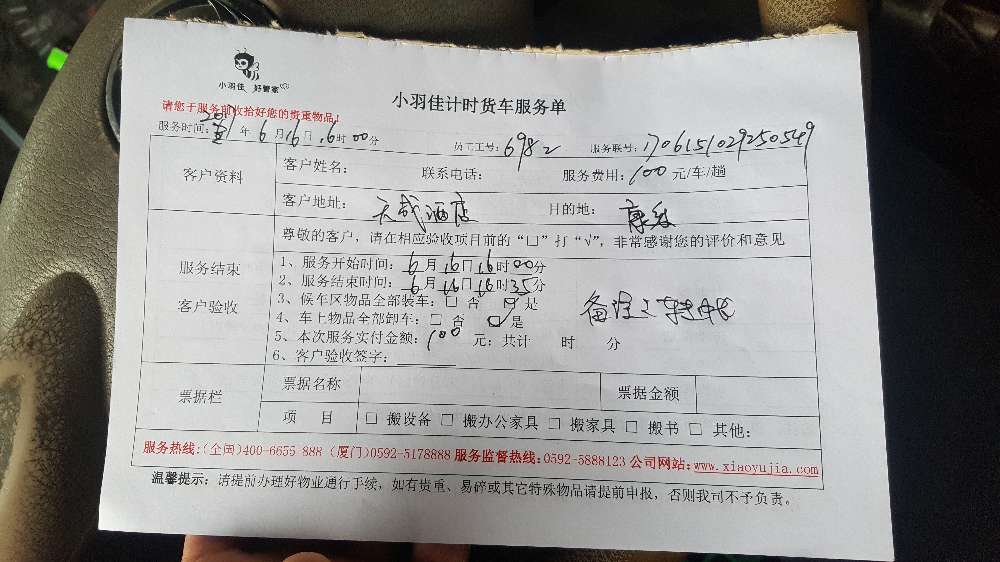 小羽佳 好管家
小羽佳计时货车服务单
请您于服务前收拾好您的贵重物品!
服务时间: 年 6 月 16 日 16 时 00 分 员工工号: 6982 服务联号: 1706151029250549
客户资料
客户姓名: 联系电话: 服务费用: 100 元/车/趟
客户地址: 天成酒店 目的地:
尊敬的客户，请在相应验收项目前的“□”打“√”，非常感谢您的评价和意见
服务结束
客户验收
1、服务开始时间: 6 月 16 日 16 时 00 分
2、服务结束时间: 6 月 16 日 16 时 35 分
3、候车区物品全部装车: □ 否 ☑ 是
4、车上物品全部卸车: □ 否 ☑ 是
5、本次服务实付金额: 100 元; 共计 时 分
6、客户验收签字:
票据栏
票据名称 票据金额
项 目 □ 搬设备 □ 搬办公家具 □ 搬家具 □ 搬书 □ 其他:
服务热线:(全国)400-6655 888 (厦门)0592-5178888 服务监督热线:0592-5888123 公司网站:www.xiaoyujia.com
温馨提示: 请提前办理好物业通行手续，如有贵重、易碎或其它特殊物品请提前申报，否则我司不予负责。